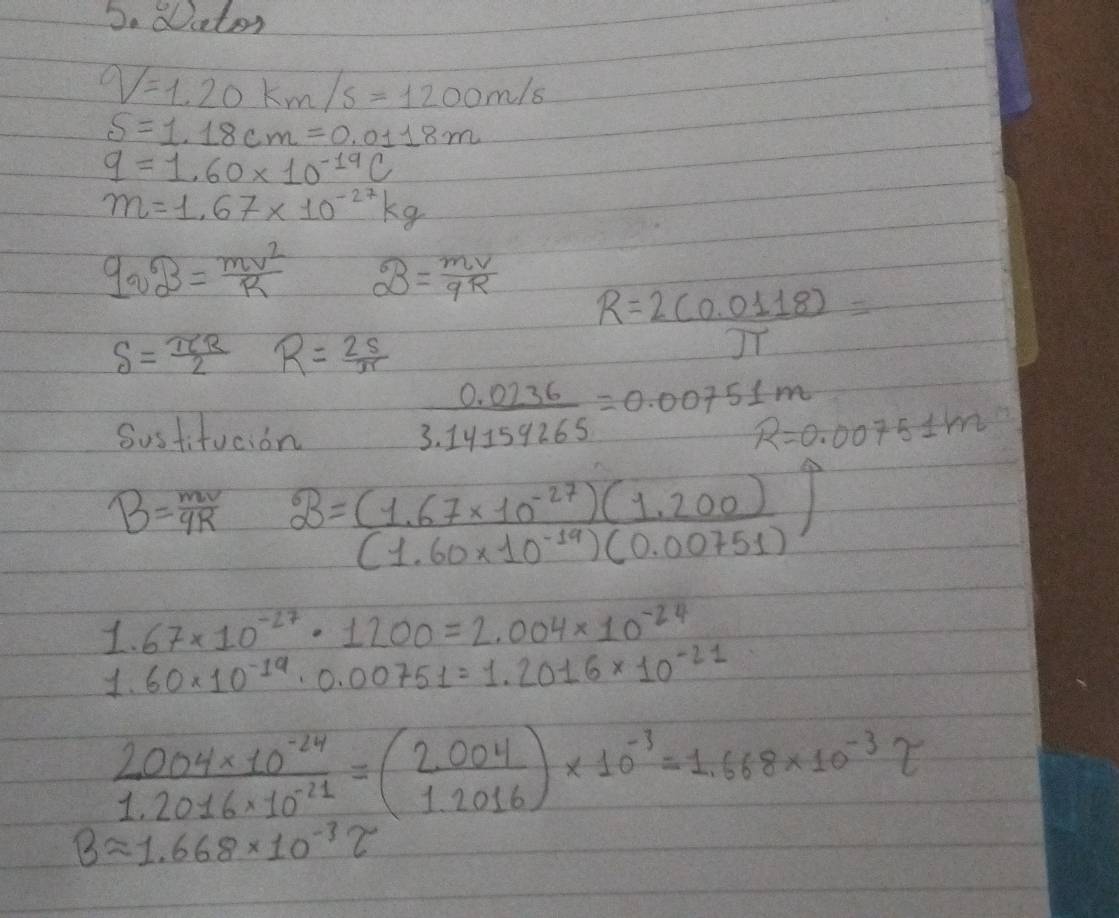 5. Datos
V=1.20 km/s=1200m/s
S=1.18cm=0.0118m
q=1.60×10⁻¹⁹C
m=1.67×10⁻²⁷kg
qvB=mv²/R B=mv/qR
R=2(0.0118)/π=
S=πR/2 R=2S/π
0.0236/3.14159265=0.00751m
Sustitución R=0.00751m
B=mv/qR B=(1.67×10⁻²⁷)(1.200)/(1.60×10⁻¹⁹)(0.00751)
1.67×10⁻²⁷·1200=2.004×10⁻²⁴
1.60×10⁻¹⁹·0.00751=1.2016×10⁻²¹
2.004×10⁻²⁴/1.2016×10⁻²¹=(2.004/1.2016)×10⁻³=1.668×10⁻³ T
B≈1.668×10⁻³ T